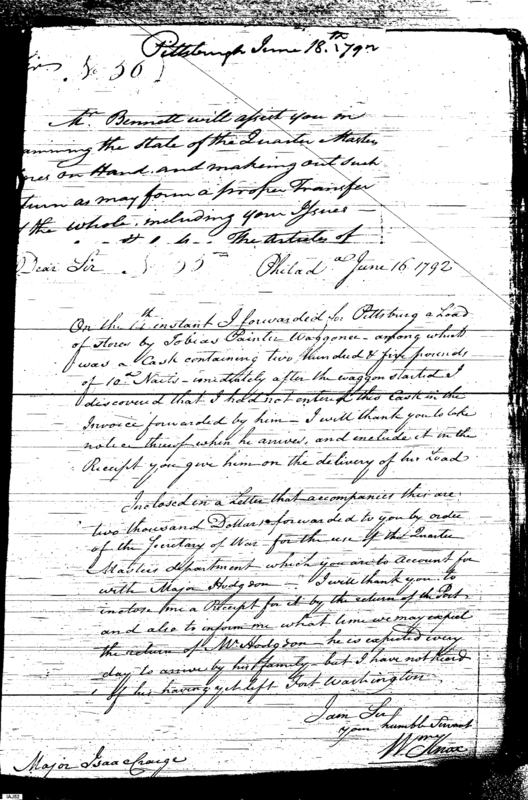 Pittsburgh June 18.th 1792
Sir, No 36
Mr. Bennett will assist you in
amining the State of the Quarter Masters
ores on Hand. and making out such
turn as may form a proper Transfer
f the whole. including your Issues
The Articles of
Dear Sir No 35 Philad.a June 16. 1792
On the instant I forwarded for Pittsburg a Load
of stores by Tobias Painter Waggoner – among which
was a Cask containing two Hundred & five pounds
of 10d. Nails – imidiately after the waggon started I
discovered that I had not entered this Cask in the
Invoice forwarded by him – I will thank you to take
notice thereof when he arrives, and include it in the
Receipt you give him on the delivery of his Load
Inclosed in a Letter that accompanies this are
two thousand Dollars forwarded to you by order
of the Secretary of War for the use of the Quarter
Masters department which you are to Account for
with Major Hodgson I will thank you to
inclose me a Receipt for it by the return of the Post
and also to inform me what time we may expect
the return of Mr Hodgson – he is expected every
day to arrive by his family – but I have not heard
of his having yet left Fort Washington
I am Sir
your humble Servant
Wm Knox
Major Isaac Craige